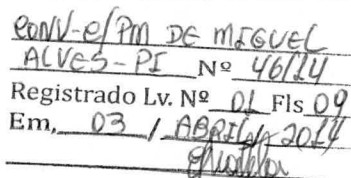 CONV-e/PM DE MIGUEL
ALVES-PI Nº 46/14
Registrado Lv. Nº 01 Fls 09
Em, 03 / ABRIL / 2014